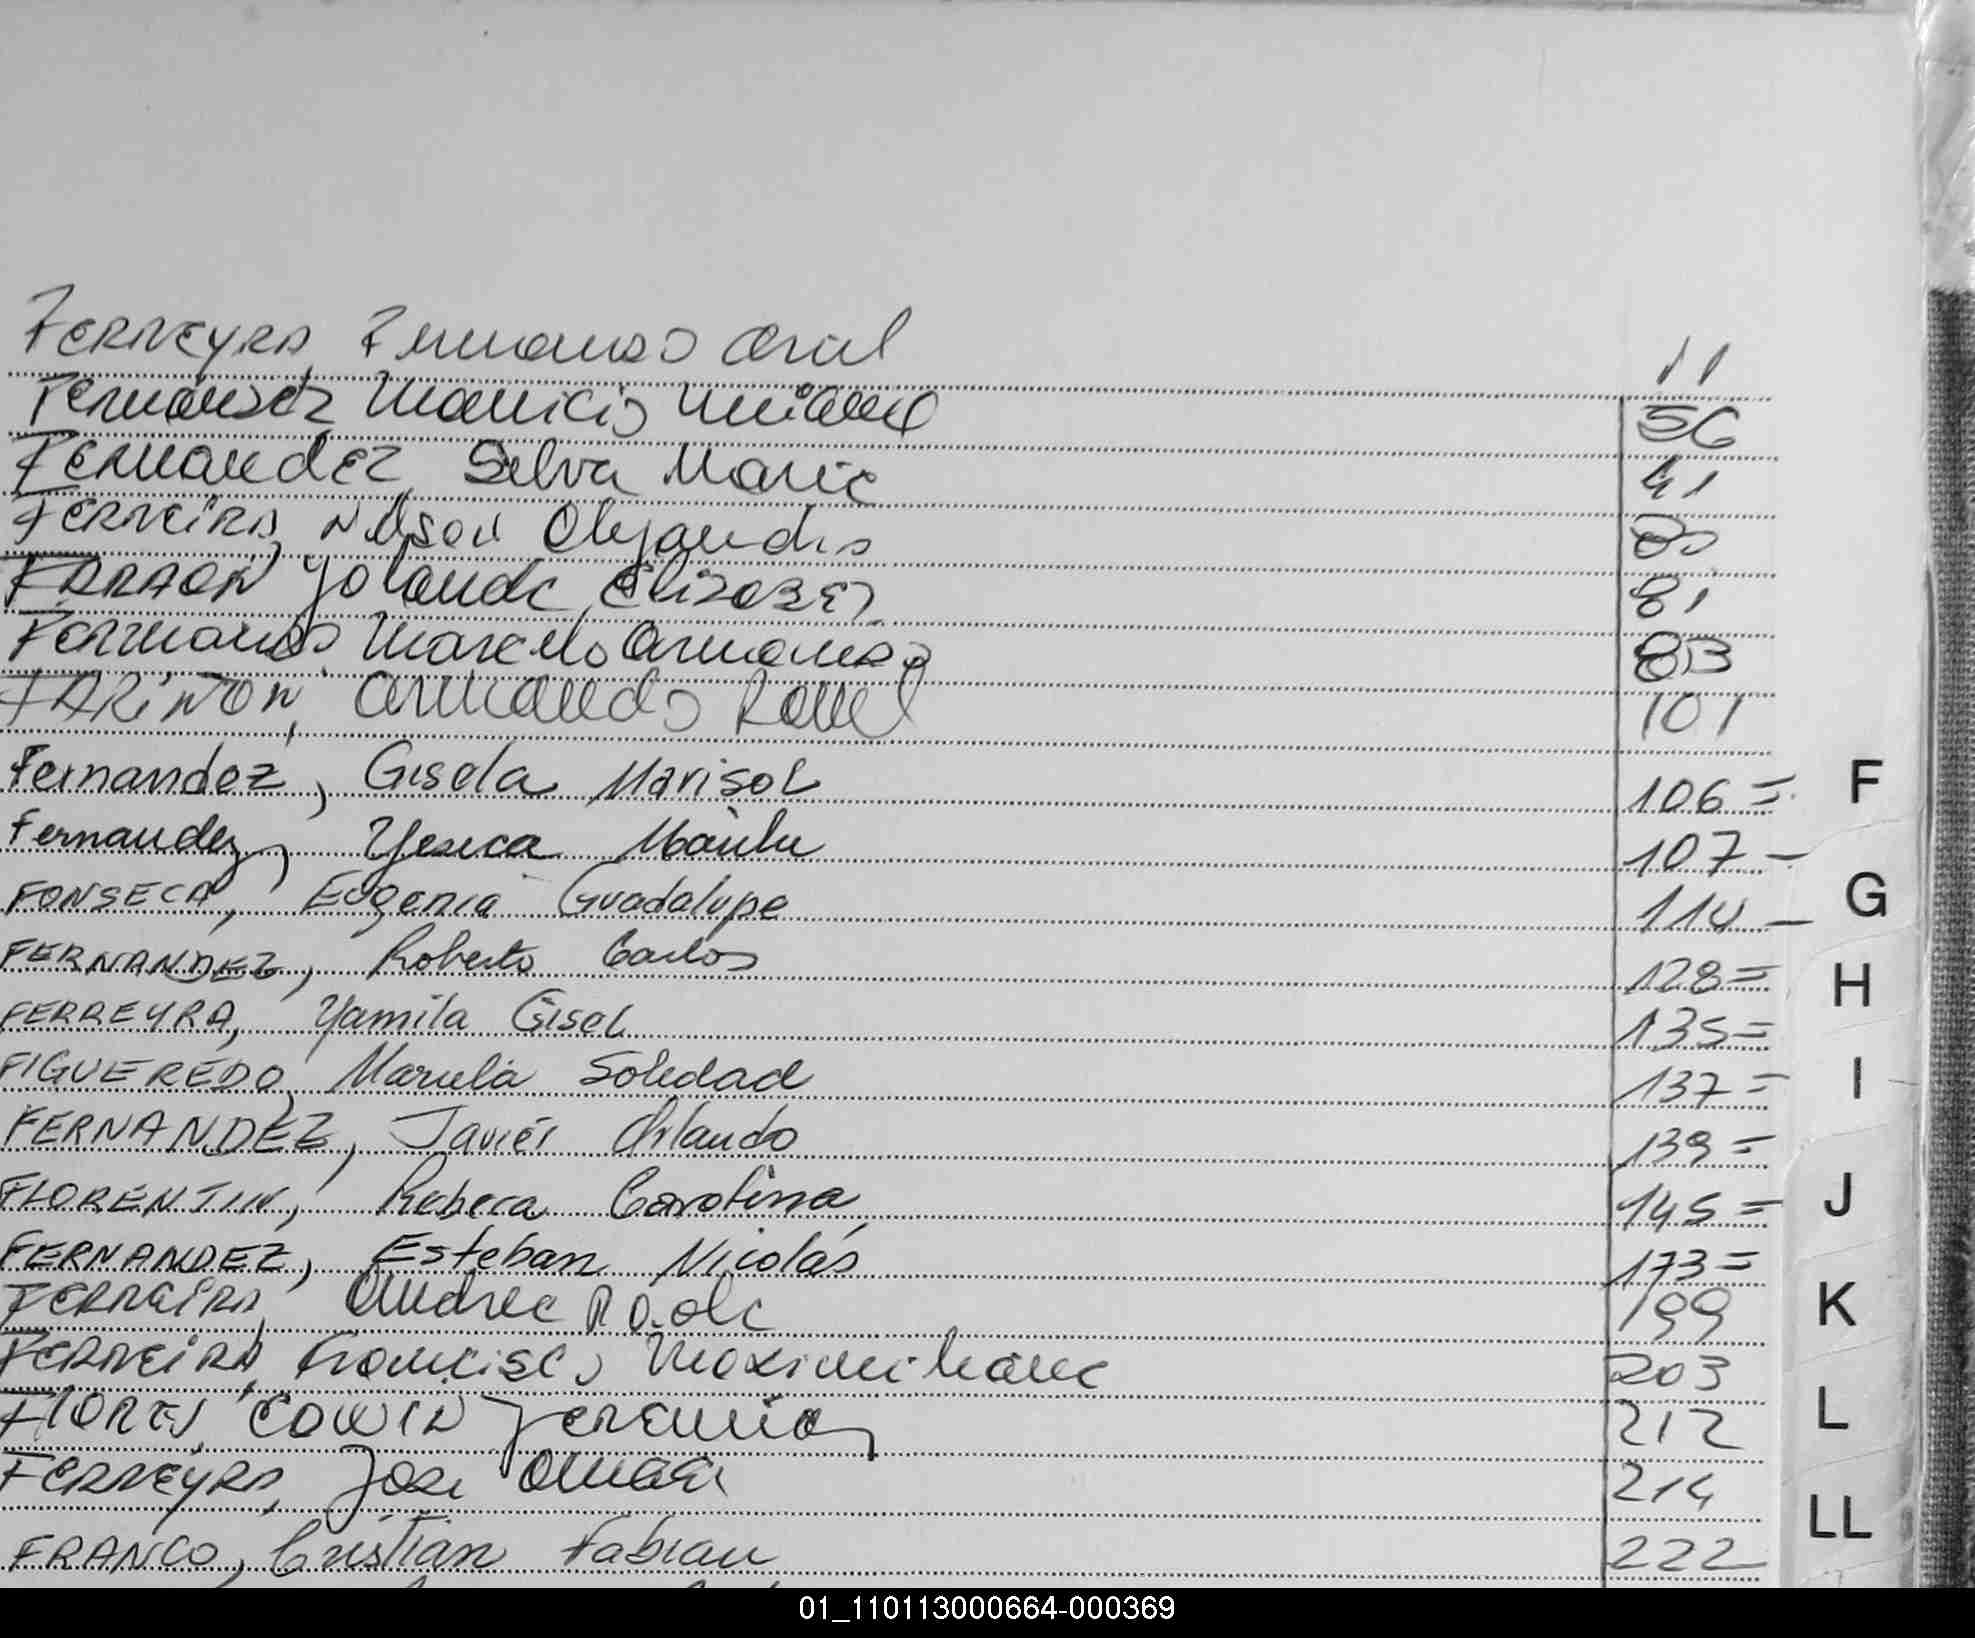 FERREYRA, Fernando Ariel 11
Fernández Mauricio Miguel 56
FERNANDEZ, Silva Maria 41
FERREIRA, Nelson Alejandro 80
FARRAON Yolanda Elizabet 81
Fernando Marcelo Armando 83
FARIÑON, Armando Raul 101
Fernandez, Gisela Marisol 106=
Fernandez, Yesica Mailu 107-
FONSECA, Eugenia Guadalupe 114-
FERNANDEZ, Roberto Carlos 128=
FERREYRA, Yamila Gisel 135=
FIGUEREDO, Mariela Soledad 137=
FERNANDEZ, Javier Orlando 139=
FLORENTIN, Rebeca Carolina 145=
FERNANDEZ, Esteban Nicolás 173=
FERREIRA, Andrea Paola 199
FERREIRA, Francisco Maximiliano 203
FLORES, EDWIN JEREMIAS 212
FERREYRA, Jose Omar 214
FRANCO, Cristian Fabian 222
F
G
H
I
J
K
L
LL
01_110113000664-000369